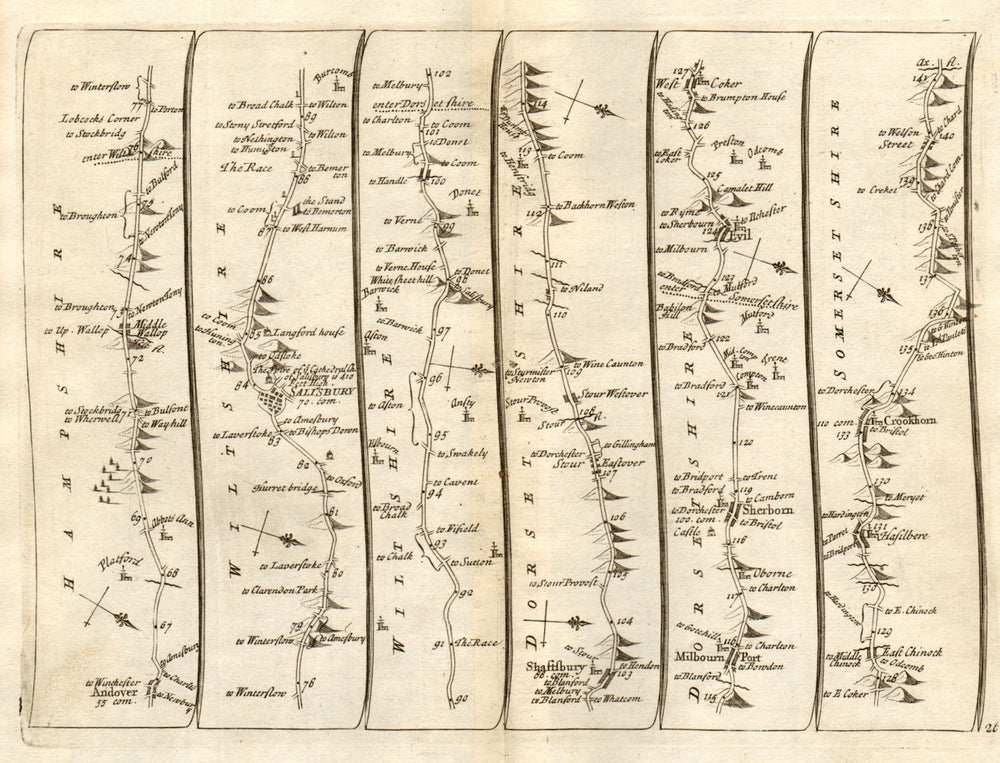 to Winterslow
77
to Porton
Lobcocks Corner
to Stockbridg
76
enter Wilt shire
to Bulford
75
to Broughton
to Newtontony
74
to Broughton
73
to Newton Tony
to Up. Wallop
Middle
Wallop
fl.
72
to Stockbridg
to Wherwell
71
to Bulfont
to Wayhill
70
69
Abbots Ann
Platford
68
67
to Amesbury
to Charlto
to Winchester
Andover
55 com.
to Newbury
HAMPSHIRE
Burcomb
to Broad Chalk
to Wilton
89
to Stony Stretford
to Wilton
to Nethington
to Humington
The Race
to Bemerton
88
the Stand
to Bemerton
to Coom
87
to West Harnum
86
to Com
to Hunington
85
Langford house
to Odstoke
The Spire of ye Cathedral Ch.
of Salisbury is 410
feet high
84
SALISBURY
70. com.
to Amesbury
to Bishops Down
to Laverstoke
83
82
to Oxford
Hurret bridge
81
to Laverstoke
80
to Clarendon Park
79
to Winterslow
to Amesbury
to Winterslow
76
WILTSHIRE
102
to Melbury
enter Dorsetshire
to Charlton
to Coom
101
to Donet
to Melbury
to Coom
to Handle
100
Donet
to Verne
99
to Barwick
to Verne House
to Donet
98
White sheet hill
to Salisbury
Barwick
to Barwick
97
Aston
96
to Aston
Ansty
95
Elbourn
to Swakely
to Cavent
94
to Broad
Chalk
to Fifield
93
to Chalk
to Sutton
92
91
The Race
90
WILTSHIRE
114
113
to Horsington
to Coom
112
to Backhorn Weston
111
to Niland
110
to Wine Caunton
to Sturmister
Newton
109
Stour Westover
Stour Provost
108
Stour fl.
to Gillingham
to Dorchester
Stour
Eastover
107
106
105
to Stour Provost
104
to Stour
Shaftsbury
88 com.
to Hendon
103
to Blanford
to Melbury
to Blanford
to Whatcom
DORSETSHIRE
127
West
Coker
to Brumpton House
126
to East
Coker
Preston
Odcomb
125
Camalet Hill
to Ryme
to Ilchester
to Sherbourn
124
Evil
to Milbourn
123
to Bradford
to Mutford
enter Somersetshire
Babilon
Hill
Mutford
122
to Bradford
Nid. Compton
Trent
Compton
to Bradford
121
to Wincaunton
120
to Bridport
to Trent
to Bradford
119
to Camborn
to Dorchester
100. com.
Sherborn
to Bristol
Castle
118
Oborne
to Charlton
117
to Gotehill
116
to Charlton
Milbourn Port
to Bowdon
to Blanford
115
DORSETSHIRE
Ax. fl.
141
to Chard
to Welson
Street
140
139
to Chard Com.
to Croket
138
137
136
135
to Geo Hinton
to Dorchester
134
110 com.
133
Crookhorn
to Bristol
130
to Meryot
to Hardington
131
Hasilbere
to Parret
to Bridport
130
to Hardington
to E. Chinock
129
to Middle
Chinock
East Chinock
to Odcomb
128
to E Coker
SOMERSETSHIRE
26